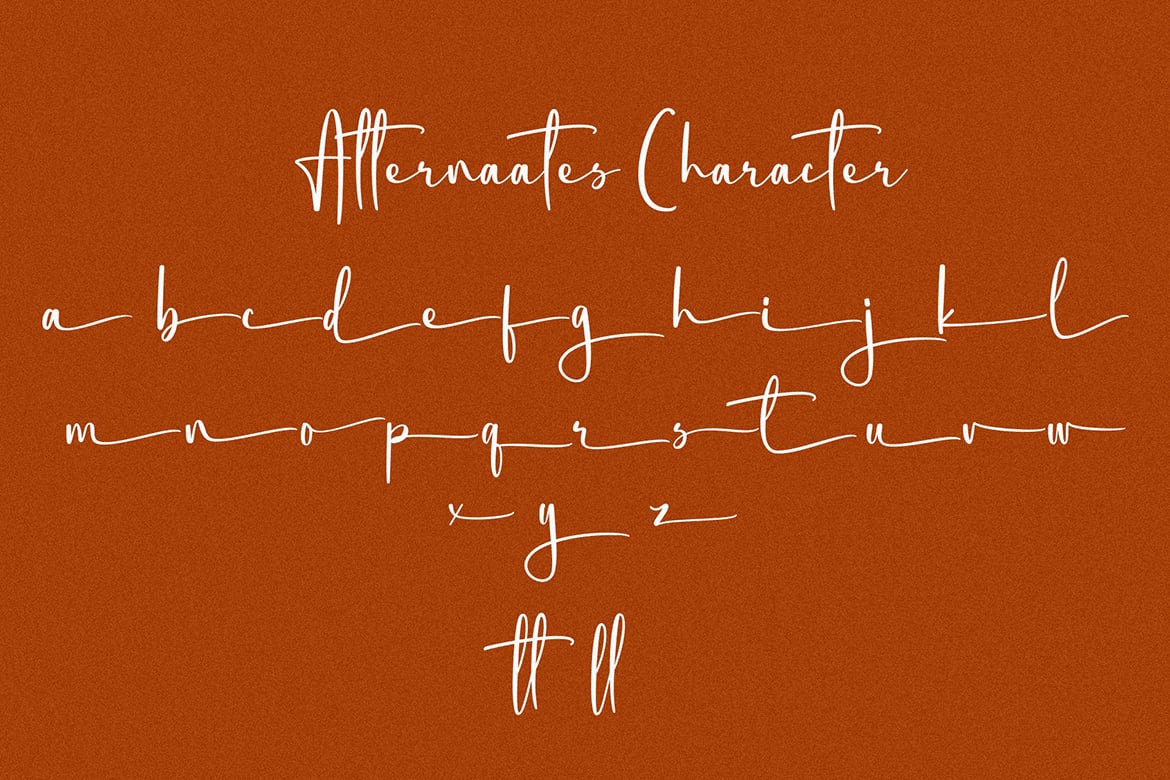 Atternaates Character
a b c d e f g h i j k l
m n o p q r s t u v w
x y z
tt ll